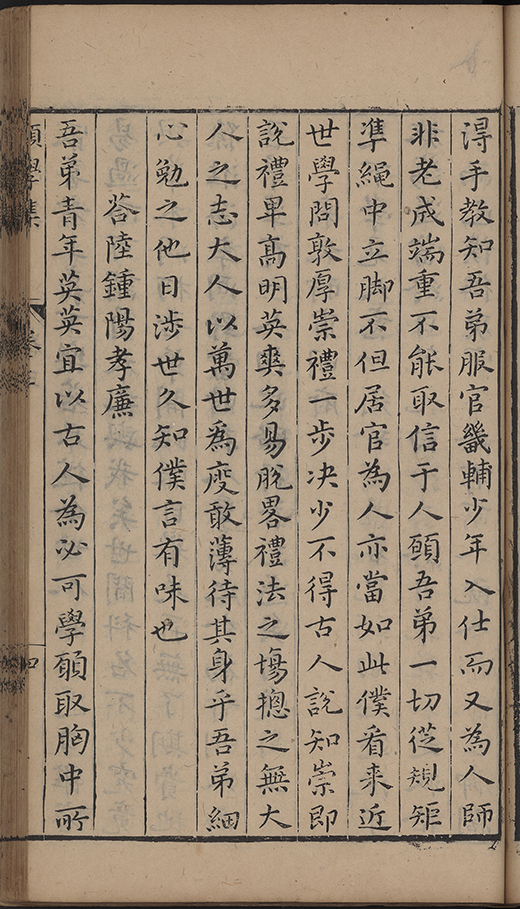 得手教知吾弟服官畿輔少年入仕而又為人師
非老成端重不能取信于人願吾弟一切從規矩
準繩中立脚不但居官為人亦當如此僕看来近
世學問敦厚崇禮一步决少不得古人說知崇即
說禮卑髙明英爽多易脫畧禮法之塲揔之無大
人之志大人以萬世爲度敢薄待其身乎吾弟細
心勉之他日涉世久知僕言有味也
答陸鍾陽孝廉
吾弟青年英英宜以古人為必可學願取胸中所
願學集
卷三
四